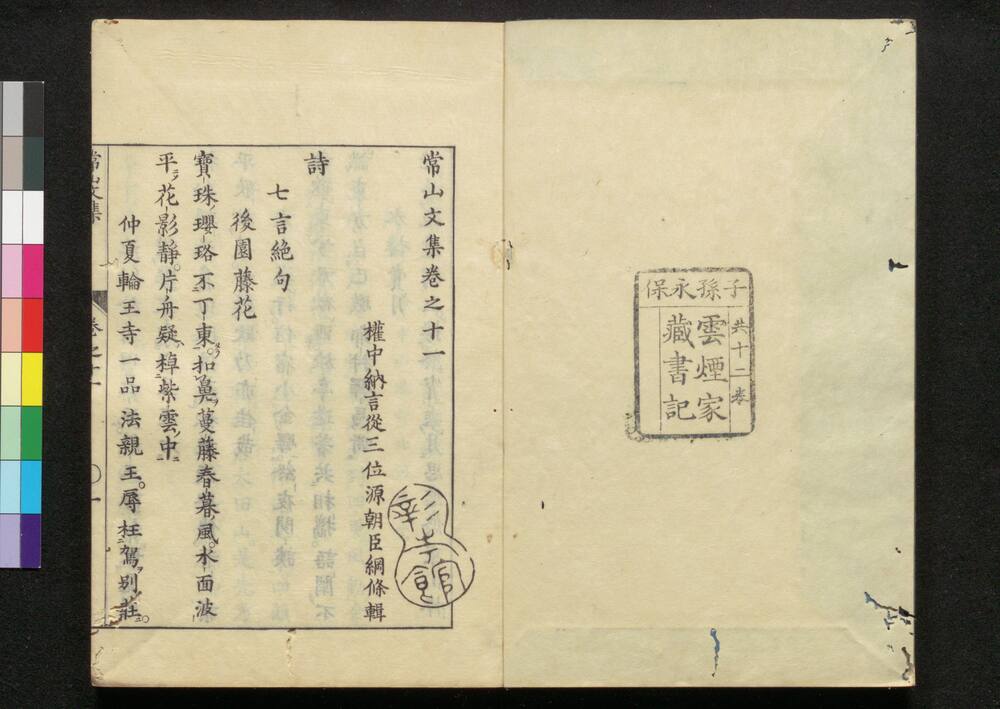 子孫永保
共十二卷
雲煙家
藏書記
常山文集卷之十一
權中納言從三位源朝臣綱條輯
彰考館
詩
七言絶句
後園藤花
寶珠瓔珞不丁東扣鼻蔓藤春暮風水面波
平花影靜片舟疑棹紫雲中
仲夏輪王寺一品法親王辱枉駕別莊
常山文集
卷之十一
〇一